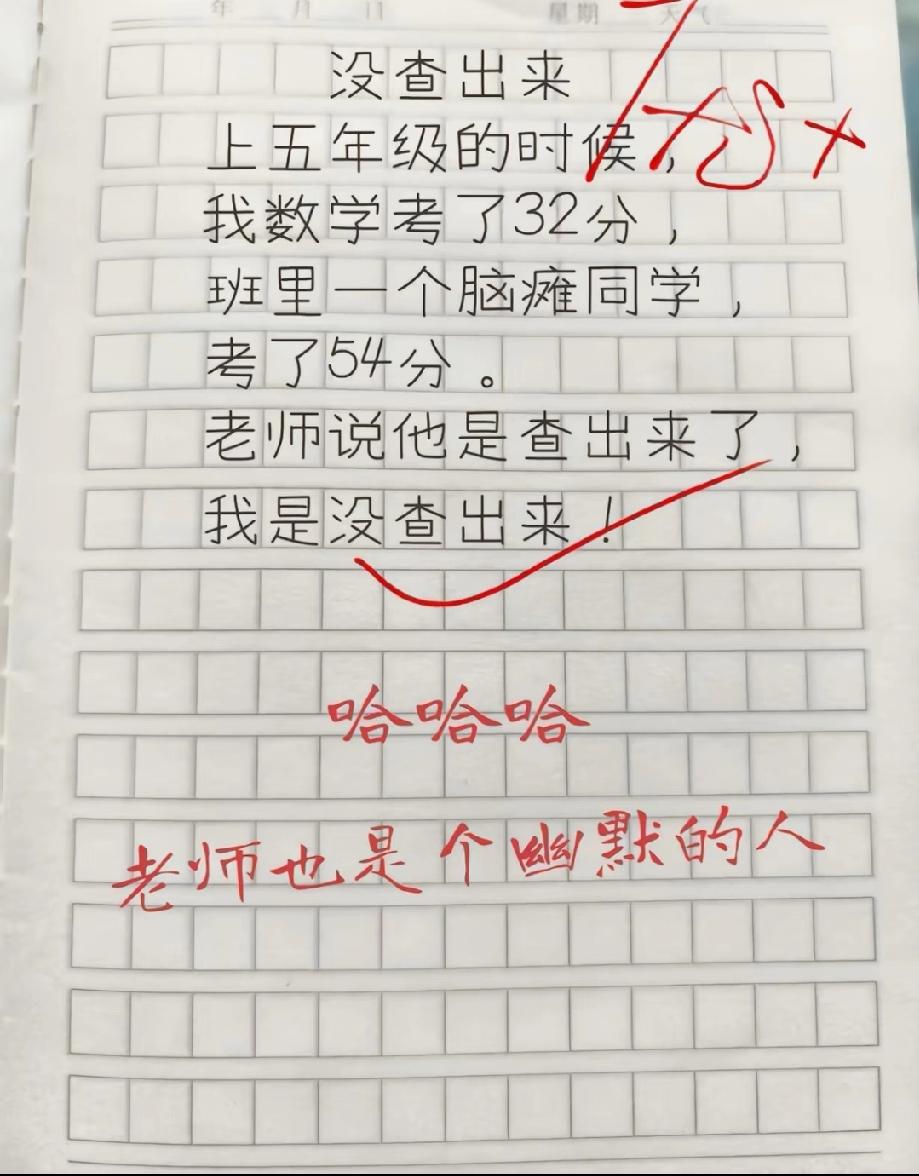 年 月 日 星期 天气
没查出来
上五年级的时候，
我数学考了32分，
班里一个脑瘫同学，
考了54分。
老师说他是查出来了，
我是没查出来！
哈哈哈
老师也是个幽默的人